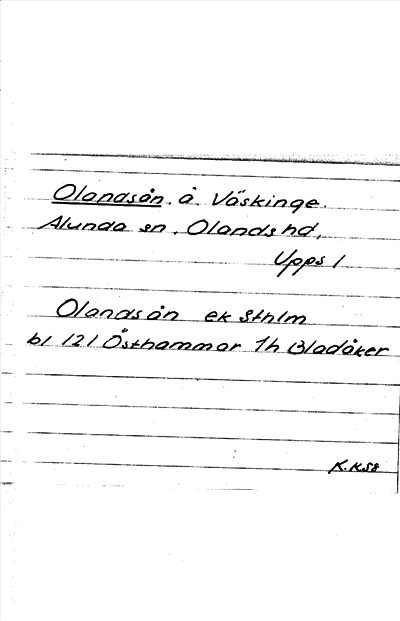 Olandsån. å. Väskinge.
Alunda sn. Olands hd,
Upps l
Olandsån ek Sthlm
bl 121 Östhammar 1h Bladåker